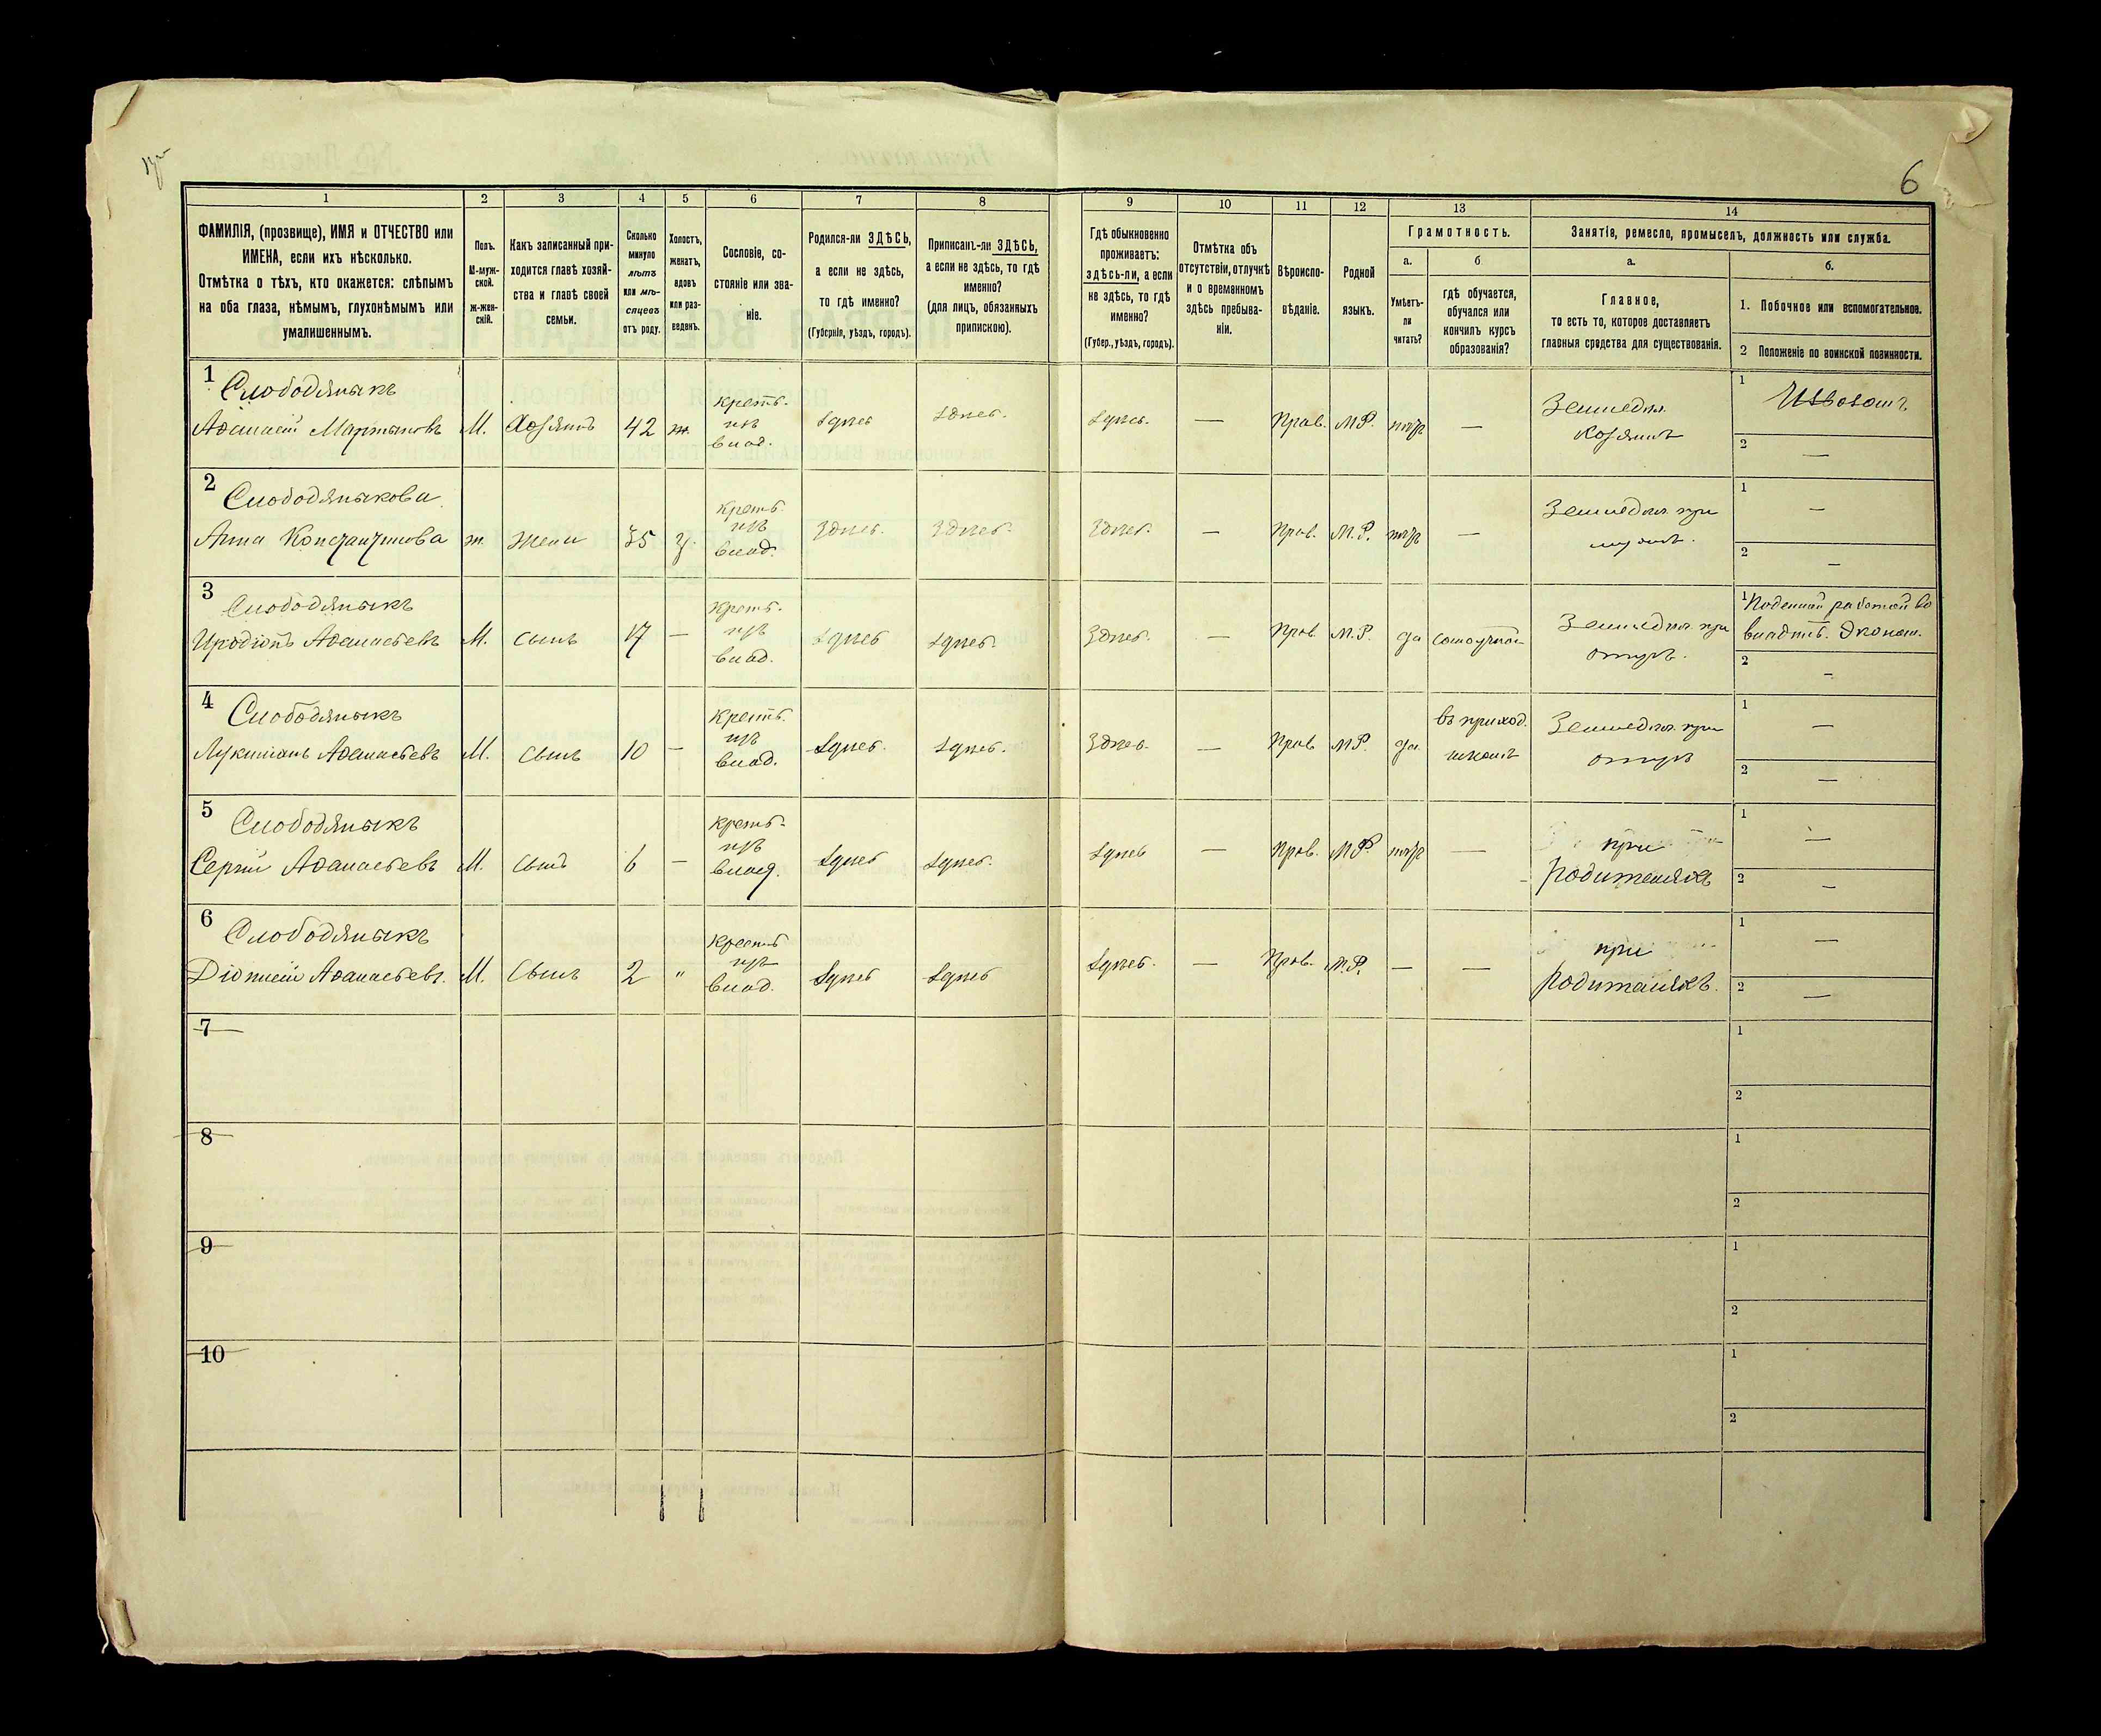 6
1 2 3 4 5 6 7 8 9 10 11 12 13 14
ФАМИЛІЯ, (прозвище), ИМЯ и ОТЧЕСТВО или
ИМЕНА, если ихъ нѣсколько.
Отмѣтка о тѣхъ, кто окажется: слѣпымъ
на оба глаза, нѣмымъ, глухонѣмымъ или
умалишеннымъ.
Полъ.
М-муж-
ской.
ж-жен-
скій.
Какъ записанный при-
ходится главѣ хозяй-
ства и главѣ своей
семьи.
Сколько
минуло
лѣтъ
или мѣ-
сяцевъ
отъ роду.
Холостъ,
женатъ,
вдовъ
или раз-
веденъ.
Сословіе, со-
стояніе или зва-
ніе.
Родился-ли ЗДѢСЬ,
а если не здѣсь,
то гдѣ именно?
(Губернія, уѣздъ, городъ).
Приписанъ-ли ЗДѢСЬ,
а если не здѣсь, то гдѣ
именно?
(для лицъ, обязанныхъ
припискою).
Гдѣ обыкновенно
проживаетъ:
здѣсь-ли, а если
не здѣсь, то гдѣ
именно?
(Губер., уѣздъ, городъ).
Отмѣтка объ
отсутствіи, отлучкѣ
и о временномъ
здѣсь пребыва-
ніи.
Вѣроиспо-
вѣданіе.
Родной
языкъ.
Грамотность.
а.
Умѣетъ-
ли
читать?
б
гдѣ обучается,
обучался или
кончилъ курсъ
образованія?
Занятіе, ремесло, промыселъ, должность или служба.
а.
Главное,
то есть то, которое доставляетъ
главныя средства для существованія.
б.
1. Побочное или вспомогательное.
2 Положеніе по воинской повинности.
1
Слободяныкъ
Афанасій Мартыновъ М. Хозяинъ 42 ж. крест. изъ влад. здѣсь здѣсь. здѣсь. — Прав. М.Р. нѣтъ — Земледѣл. хозяинъ
1 Извозомъ
2 —
2
Слободяныкова
Анна Константинова ж. жена 35 з. крест. изъ влад. Здѣсь. Здѣсь. Здѣсь. — Прав. М.Р. нѣтъ — Земледѣл. при мужѣ.
1 —
2 —
3
Слободяныкъ
Иродіонъ Афанасьевъ М. сынъ 17 — крест. изъ влад. здѣсь здѣсь. Здѣсь. — Прав. М.Р. да Земледѣл. при отцѣ.
1 Поденной работой во
владѣл. Эконом.
2 —
4
Слободяныкъ
Лукіянъ Афанасьевъ М. сынъ 10 — крест. изъ влад. здѣсь. здѣсь. Здѣсь. — Прав. М.Р. да въ приход. школѣ Земледѣл. при отцѣ
1 —
2 —
5
Слободяныкъ
Сергій Афанасьевъ М. сынъ 6 — крест. изъ влад. здѣсь здѣсь. здѣсь — Прав. М.Р. нѣтъ — при родителяхъ
1 —
2 —
6
Слободяныкъ
Діонисій Афанасьевъ. М. Сынъ 2 " крест. изъ влад. здѣсь здѣсь здѣсь. — Прав. М.Р. — — при родителяхъ.
1 —
2 —
7
1
2
8
1
2
9
1
2
10
1
2